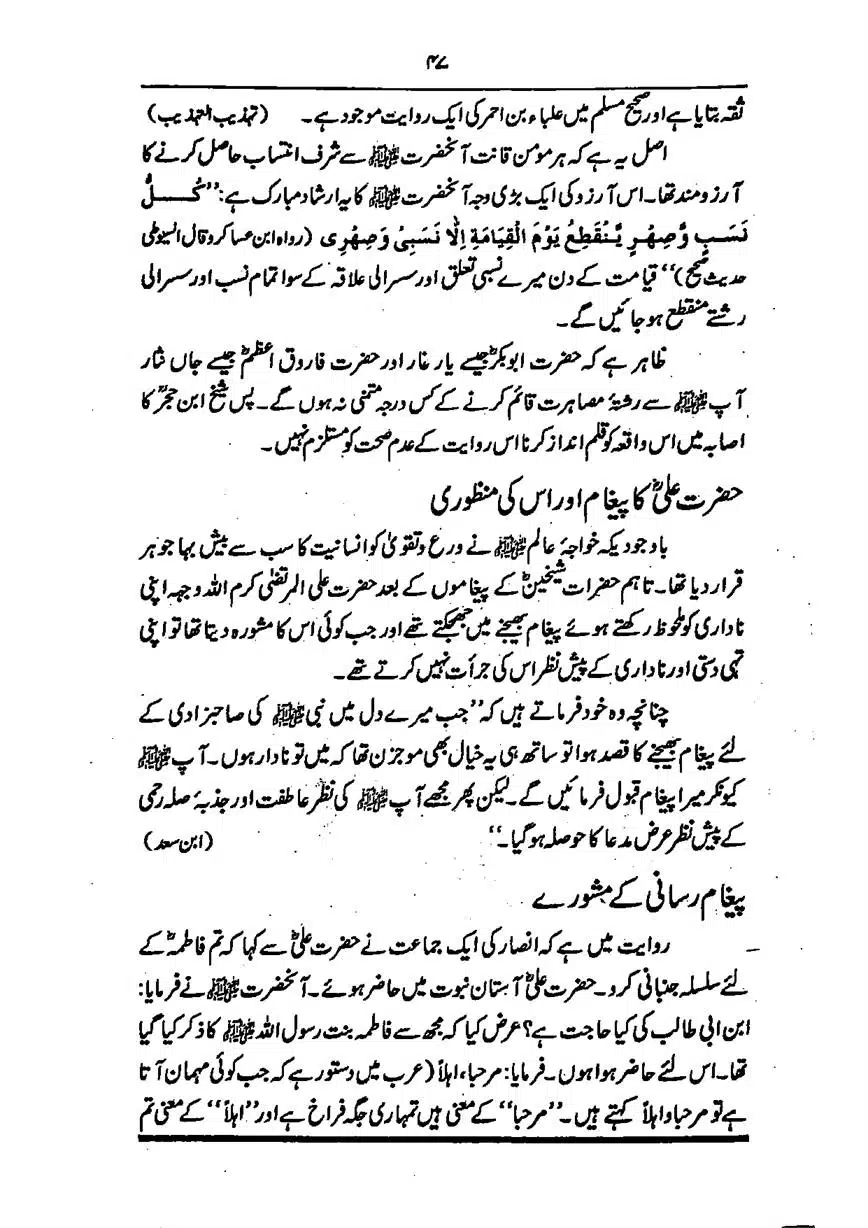 ۴۷
ثقہ بتایا ہے اور صحیح مسلم میں علباء بن احمر کی ایک روایت موجود ہے۔ (تہذیب التہذیب)
اصل یہ ہے کہ ہر مومن قانت آنحضرت ﷺ سے شرف انتساب حاصل کرنے کا
آرزومند تھا۔ اس آرزو کی ایک بڑی وجہ آنحضرت ﷺ کا یہ ارشاد مبارک ہے: ’’كُلُّ
نَسَبٍ وَّصِهْرٍ يَّنْقَطِعُ يَوْمَ الْقِيَامَةِ اِلَّا نَسَبِىْ وَصِهْرِى (رواہ ابن عساکر وقال السیوطی
حدیث صحیح)‘‘ قیامت کے دن میرے نسبی تعلق اور سسرالی علاقہ کے سوا تمام نسب اور سسرالی
رشتے منقطع ہو جائیں گے۔
ظاہر ہے کہ حضرت ابوبکرؓ جیسے یار غار اور حضرت فاروق اعظمؓ جیسے جاں نثار
آپ ﷺ سے رشتۂ مصاہرت قائم کرنے کے کس درجہ متمنی نہ ہوں گے۔ پس شیخ ابن حجرؒ کا
اصابہ میں اس واقعہ کو قلم انداز کرنا اس روایت کے عدم صحت کو مستلزم نہیں۔
حضرت علیؓ کا پیغام اور اس کی منظوری
باوجودیکہ خواجۂ عالم ﷺ نے ورع وتقویٰ کو انسانیت کا سب سے بیش بہا جوہر
قرار دیا تھا۔ تاہم حضرات شیخینؓ کے پیغاموں کے بعد حضرت علی المرتضیٰ کرم اللہ وجہہ اپنی
ناداری کو ملحوظ رکھتے ہوئے پیغام بھیجنے میں جھجکتے تھے اور جب کوئی اس کا مشورہ دیتا تھا تو اپنی
تہی دستی اور ناداری کے پیش نظر اس کی جرأت نہیں کرتے تھے۔
چنانچہ وہ خود فرماتے ہیں کہ ’’جب میرے دل میں نبی ﷺ کی صاحبزادی کے
لئے پیغام بھیجنے کا قصد ہوا تو ساتھ ہی یہ خیال بھی موجزن تھا کہ میں تو نادار ہوں۔ آپ ﷺ
کیونکر میرا پیغام قبول فرمائیں گے۔ لیکن پھر مجھے آپ ﷺ کی نظر عاطفت اور جذبۂ صلہ رحمی
کے پیش نظر عرض مدعا کا حوصلہ ہو گیا۔‘‘ (ابن سعد)
پیغام رسانی کے مشورے
روایت میں ہے کہ انصار کی ایک جماعت نے حضرت علیؓ سے کہا کہ تم فاطمہؓ کے
لئے سلسلہ جنبانی کرو۔ حضرت علیؓ آستان نبوت میں حاضر ہوئے۔ آنحضرت ﷺ نے فرمایا:
ابن ابی طالب کی کیا حاجت ہے؟ عرض کیا کہ مجھ سے فاطمہ بنت رسول اللہ ﷺ کا ذکر کیا گیا
تھا۔ اس لئے حاضر ہوا ہوں۔ فرمایا: مرحبا، اہلاً (عرب میں دستور ہے کہ جب کوئی مہمان آتا
ہے تو مرحبا واہلاً کہتے ہیں۔ ’’مرحبا‘‘ کے معنی ہیں تمہاری جگہ فراخ ہے اور ’’اہلاً‘‘ کے معنی تم